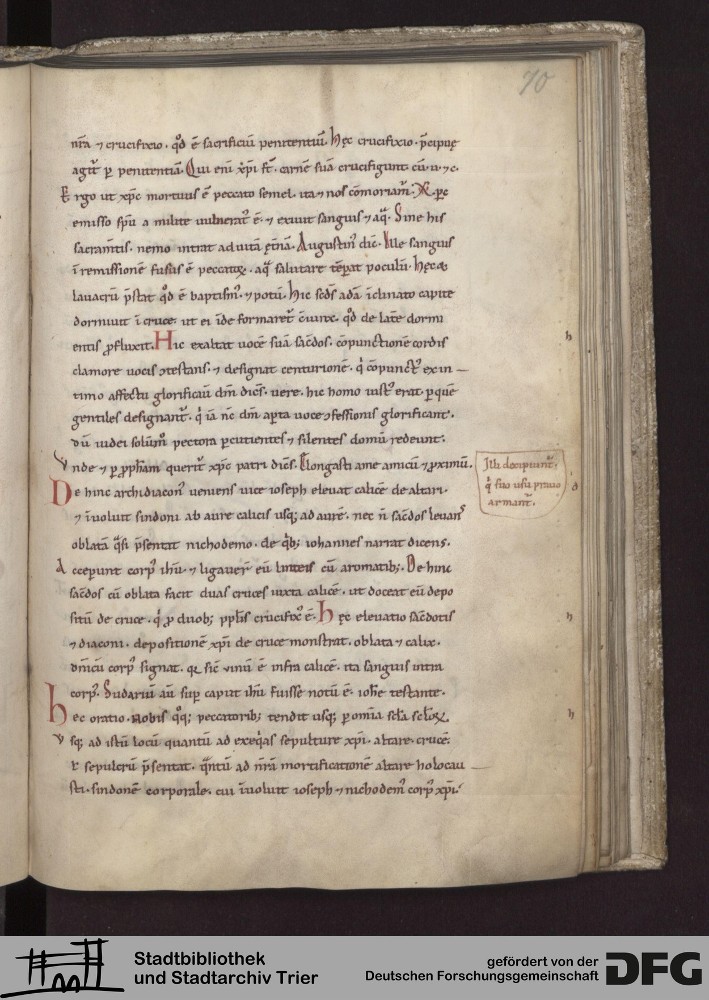 70
nr̄a ⁊ crucifixio. qđ ē sacrificiū penitentiū. hęc crucifixio p̄cipuę
agit᷑ ꝑ penitentiā. Qui eni xp̄i st̄. carnē suā crucifigunt cū. u. ⁊ c.
Ergo ut xp̄c mortuus ē peccato semel. ita ⁊ nos cōmoriam᷑.
emisso spū a milite uulnerat᷑ ē. ⁊ exiuit sanguis ⁊ aq̄. Sine his
sacram̄tis. nemo intrat ad uitā ęt̄nā. Augustin᷑ dic̄. Ille sanguis
ī remissionē fusus ē peccatoꝝ. aq̄ salutare tēꝑat poculū. hęc &
lauacrū p̄stat qđ ē baptism᷑. ⁊ potū. hic scđs adā īclinato capite
dormiuit ī cruce. ut ei īde formaret᷑ c̄iunx. qđ de lat̄e dormi
entis ꝓfluxit. Hic exaltat uocē suā sac̄dos. cōpunctionē cordis
clamore uocis ↄtestans. ⁊ designat centurionē. q̇ cōpunct᷑ ex in
timo affectu glorificauit dm̄ dicēs. uere. hic homo iust᷑ erat. ꝑ quē
gentiles designant᷑. q̇ iā nc̄ dm̄ aꝑta uoce ↄfessionis glorificant.
dū iudei solūm᷑ pectora ꝑcutientes ⁊ silentes domū redeunt.
Vnde ⁊ ꝑ ꝓph̄am querit᷑ xp̄c patri dicēs. Elongasti a me amicū ⁊ ꝓximū.
De hinc archidiacon᷑ ueniens uice ioseph eleuat calicē de altari.
⁊ īuoluit sindoni ab aure calicis usq; ad aurē. nec n̄ sac̄dos leuans
oblatā q̄si p̄sentat nichodemo. de q̇b; iohannes narrat dicens.
Acceperunt corp᷑ ih̄u. ⁊ ligauer̄ eū linteis cū aromatib;. De hinc
sac̄dos cū oblata facit duas cruces iuxta calicē. ut doceat eū depo
sitū de cruce. q̇ ꝓ duob; pplīs crucifix᷑ ē. hęc eleuatio sac̄dotis
⁊ diaconi. depositionē xp̄i de cruce monstrat. oblata ⁊ calix.
dn̄icū corp᷑ signat. q̄ sic̄ uinū ē infra calicē. ita sanguis intra
corp᷑. Sudariū aū suꝑ caput ih̄u fuisse notū ē. ioh̄e testante.
hec oratio. Nobis q̊q; peccatorib; tendit usq; ꝑ om̄ia scl̄a scl̄oꝝ.
Vsq; ad istū locū quantū ad exeq̇as sepulture xp̄i. altare. crucē.
⁊ sepulcrū p̄sentat. q̄ntū ad nr̄ā mortificationē altare holocau
sti. sindonē corporale. cui īuoluit ioseph ⁊ nichodem᷑ corp᷑ xp̄i.
Illi decipiunt᷑.
q̇ suo usu prauo
armant᷑.
Stadtbibliothek
und Stadtarchiv Trier
gefördert von der
Deutschen Forschungsgemeinschaft
DFG